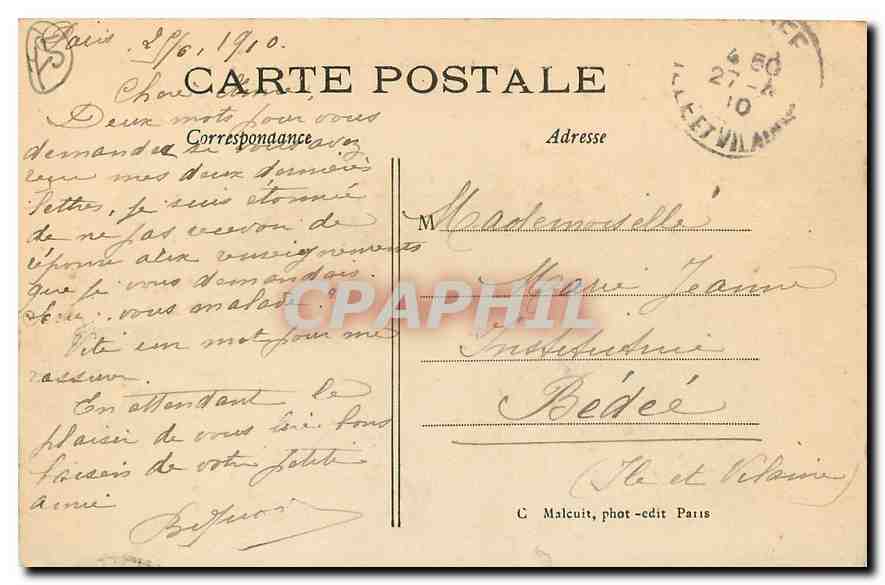 Paris 1910.
CARTE POSTALE
Chère Amie,
Correspondance
Adresse
Deux mots pour vous
demander si vous avez
reçu mes deux dernières
lettres, je suis étonnée
de ne pas recevoir de
réponse aux renseignements
que je vous demandais.
vous malade?
Vite un mot pour me
rassurer.
En attendant le
plaisir de vous lire bons
baisers de votre petite
amie
M Mademoiselle
Marie Jeanne
Institutrice
Bédéé
(Ile et Vilaine)
C Malcuit, phot-edit Paris
4 50
27 -
10
ILLE ET VILAINE
CPAPHIL